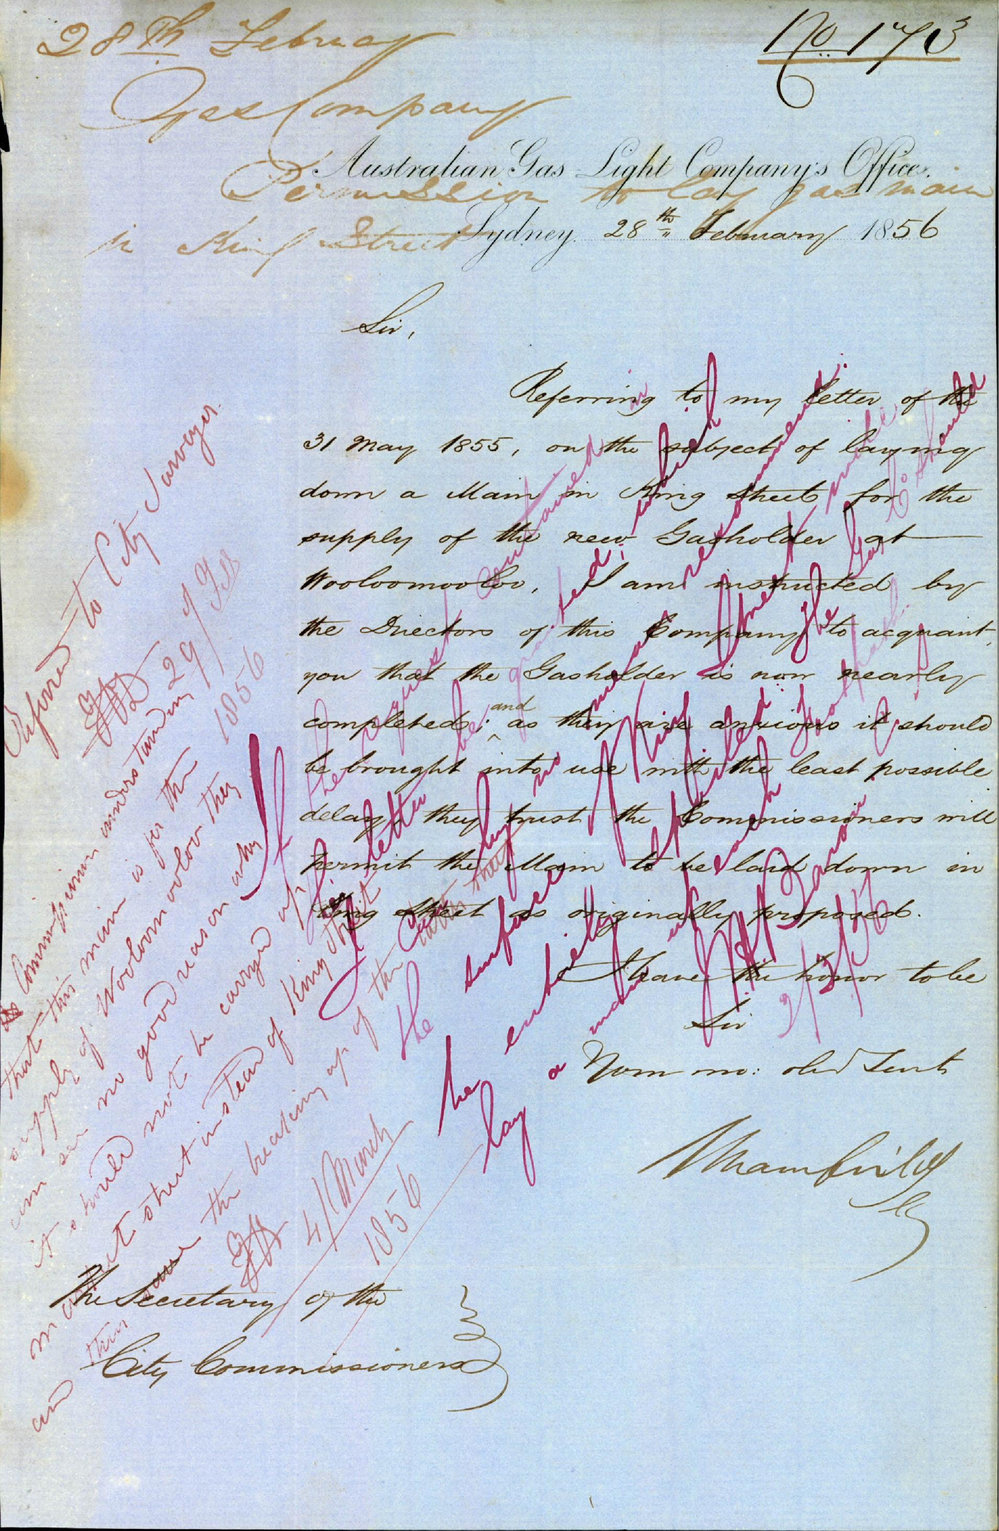 No. 173
28th February
Gas Company
Permission to lay gas main
in King Street
Australian Gas Light Company's Office.
Sydney 28th February 1856
Sir,
Referring to my letter of the
31 May 1855, on the subject of laying
down a Main in King Street for the
supply of the new Gasholder at
Wooloomooloo, I am instructed by
the Directors of this Company to acquaint
you that the Gasholder is now nearly
completed; and as they are anxious it should
be brought into use with the least possible
delay they trust the Commissioners will
permit the Main to be laid down in
King Street as originally proposed.
I have the honor to be
Sir
Your mo: obed Servt
The Secretary of the
City Commissioners
Referred to City Surveyor.
29/Feb
1856
If the request contained in
letter be granted, which
I by no means recommend.
the surface King Street
be entirely The Gas Co should
lay a main up each footpath
2/3/56
The Commissioners understanding
that this main is for the
supply of Wooloomooloo they
see no good reason why
it should not be carried up
Market Street instead of King Street
and thus save the breaking up of the
4/March
1856